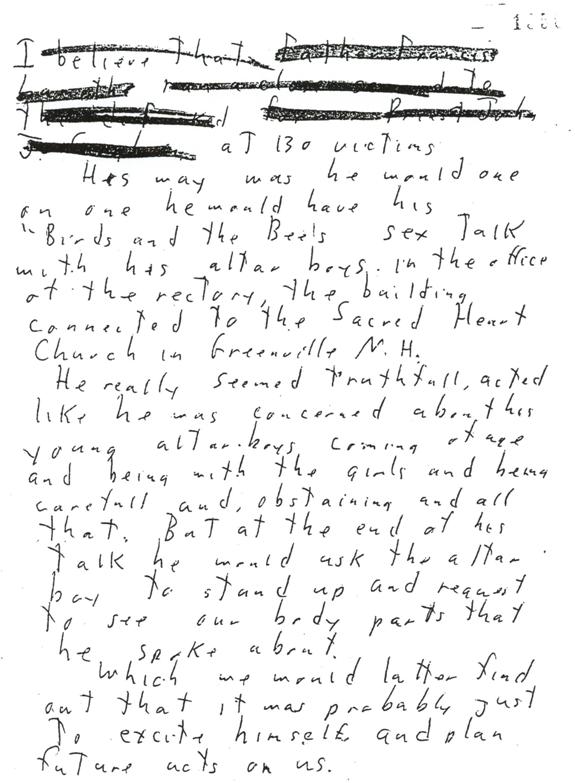 I believe that Father Francis
to
J. at 130 victims
His way was he would one
on one he would have his
"Birds and the Bee's sex Talk
with his altar boys. in the office
of the rectory, the building
connected to the Sacred Heart
Church in Greenville N.H.
He really seemed truthfull, acted
like he was concerned about his
young altar boys coming of age
and being with the girls and being
carefull and, obstaining and all
that. But at the end of his
talk he would ask the altar
boy to stand up and request
to see our body parts that
he spoke about.
Which we would latter find
out that it was probably just
To excite himself and plan
future acts on us.